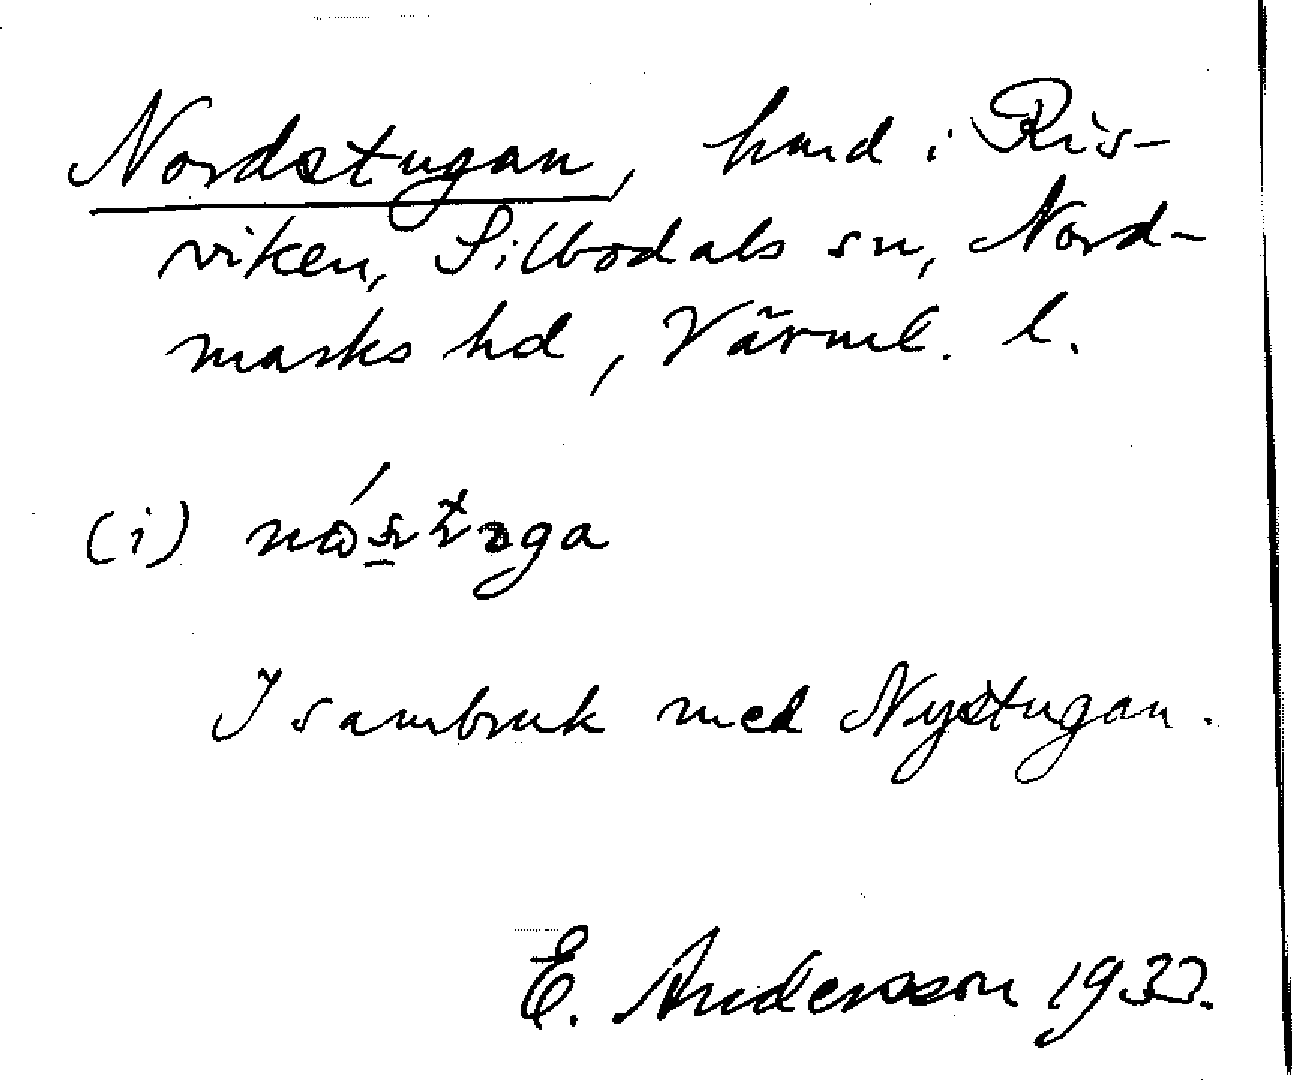 Nordstugan, hmd i Ris-
viken, Silbodals sn, Nord-
marks hd, Värml. l.
(i)
I sambruk med Nystugan.
E. Andersson 1933.